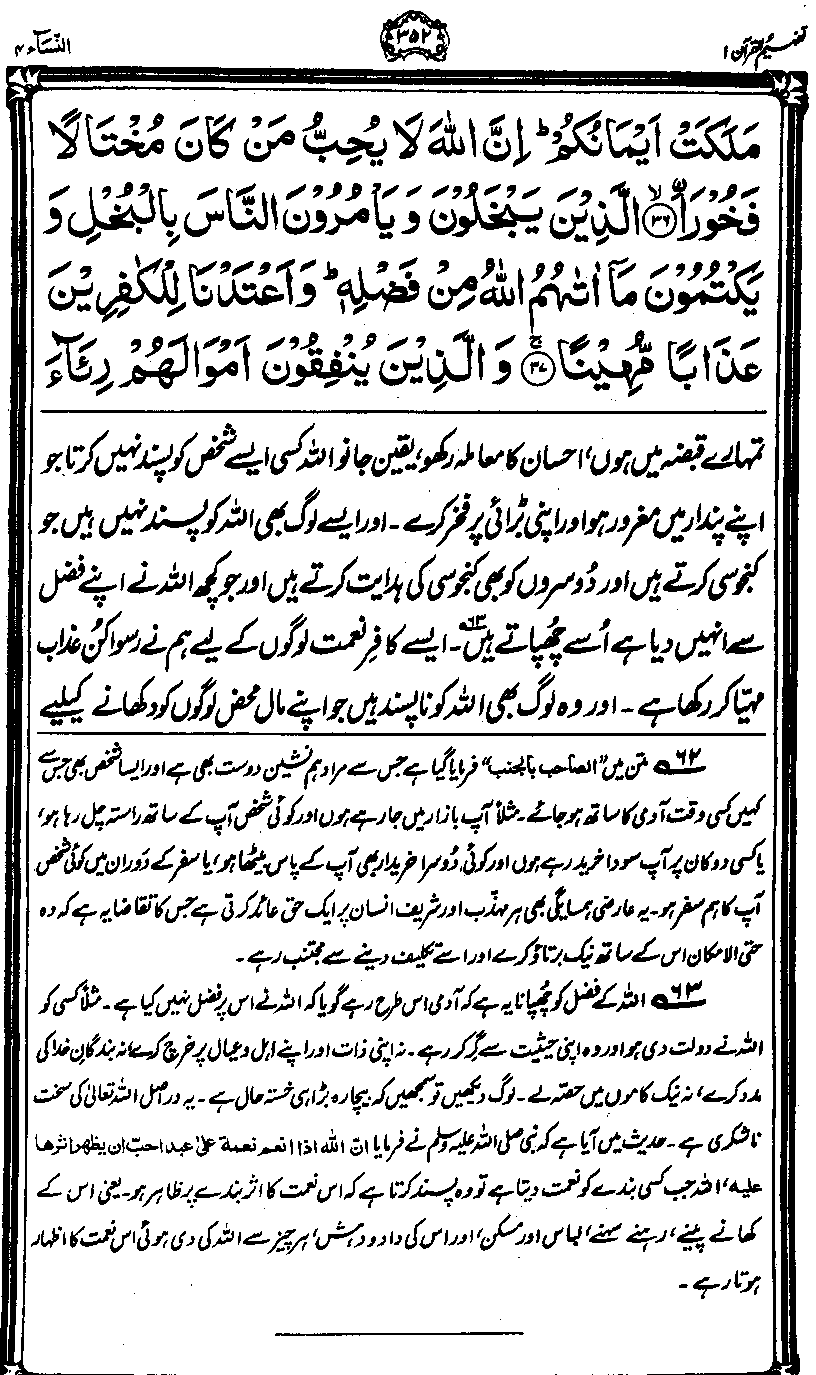 تفہیم القرآن ۱
۳۵۲
النّسآء ۴
مَلَكَتْ اَيْمَانُكُمْ ؕ اِنَّ اللّٰهَ لَا يُحِبُّ مَنْ كَانَ مُخْتَالًا
فَخُوْرَا ۙ﴿۳۶﴾ الَّذِيْنَ يَبْخَلُوْنَ وَ يَاْمُرُوْنَ النَّاسَ بِالْبُخْلِ وَ
يَكْتُمُوْنَ مَاۤ اٰتٰىهُمُ اللّٰهُ مِنْ فَضْلِهٖ ؕ وَاَعْتَدْنَا لِلْكٰفِرِيْنَ
عَذَابًا مُّهِيْنًا ۚ﴿۳۷﴾ وَ الَّذِيْنَ يُنْفِقُوْنَ اَمْوَالَهُمْ رِئَآءَ
تمہارے قبضہ میں ہوں، احسان کا معاملہ رکھو، یقین جانو اللہ کسی ایسے شخص کو پسند نہیں کرتا جو
اپنے پندار میں مغرور ہو اور اپنی بڑائی پر فخر کرے۔ اور ایسے لوگ بھی اللہ کو پسند نہیں ہیں جو
کنجوسی کرتے ہیں اور دُوسروں کو بھی کنجوسی کی ہدایت کرتے ہیں اور جو کچھ اللہ نے اپنے فضل
سے انہیں دیا ہے اُسے چھپاتے ہیں۶۳۔ ایسے کافرِ نعمت لوگوں کے لیے ہم نے رسوا کُن عذاب
مہیّا کر رکھا ہے۔ اور وہ لوگ بھی اللہ کو ناپسند ہیں جو اپنے مال محض لوگوں کو دکھانے کیلیے
۶۲ متن میں "الصاحب بالجنب" فرمایا گیا ہے جس سے مراد ہم نشین دوست بھی ہے اور ایسا شخص بھی جس سے
کہیں کسی وقت آدمی کا ساتھ ہو جائے۔ مثلاً آپ بازار میں جا رہے ہوں اور کوئی شخص آپ کے ساتھ راستہ چل رہا ہو،
یا کسی دوکان پر آپ سودا خرید رہے ہوں اور کوئی دُوسرا خریدار بھی آپ کے پاس بیٹھا ہو، یا سفر کے دَوران میں کوئی شخص
آپ کا ہم سفر ہو۔ یہ عارضی ہمسایگی بھی ہر مہذّب اور شریف انسان پر ایک حق عائد کرتی ہے جس کا تقاضا یہ ہے کہ وہ
حتی الامکان اس کے ساتھ نیک برتاؤ کرے اور اسے تکلیف دینے سے مجتنب رہے۔
۶۳ اللہ کے فضل کو چھپانا یہ ہے کہ آدمی اس طرح رہے گویا کہ اللہ نے اس پر فضل نہیں کیا ہے۔ مثلاً کسی کو
اللہ نے دولت دی ہو اور وہ اپنی حیثیت سے گر کر رہے۔ نہ اپنی ذات اور اپنے اہل و عیال پر خرچ کرے، نہ بندگانِ خدا کی
مدد کرے، نہ نیک کاموں میں حصّہ لے۔ لوگ دیکھیں تو سمجھیں کہ بیچارہ بڑا ہی خستہ حال ہے۔ یہ دراصل اللہ تعالیٰ کی سخت
ناشکری ہے۔ حدیث میں آیا ہے کہ نبی صلی اللہ علیہ وسلم نے فرمایا ان اللہ اذا انعم نعمة علیٰ عبد احب ان یظھر اثرھا
علیہ، اللہ جب کسی بندے کو نعمت دیتا ہے تو وہ پسند کرتا ہے کہ اس نعمت کا اثر بندے پر ظاہر ہو۔ یعنی اس کے
کھانے پینے، رہنے سہنے، لباس اور مسکن، اور اس کی داد و دہش، ہر چیز سے اللہ کی دی ہوئی اس نعمت کا اظہار
ہوتا رہے۔